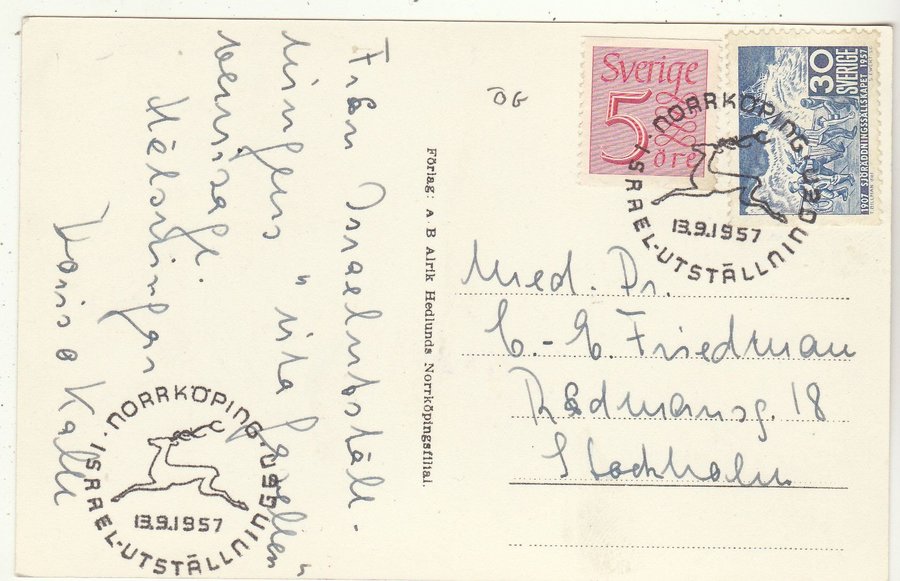 Från Israelutställ-
ningens "vita gasellen"
vernissage.
Hälsningar
Doris o Kalle
OG
Förlag: A. B Alrik Hedlunds Norrköpingsfilial.
Sverige
5
öre
30
SVERIGE
1907 SJÖRÄDDNINGSSÄLLSKAPET 1957
NORRKÖPING
ISRAEL-UTSTÄLLNINGSSON
13.9.1957
Med. Dr.
C.-E. Friedman
Rådmansg. 18
Stockholm
NORRKÖPING
ISRAEL-UTSTÄLLNINGSSON
13.9.1957